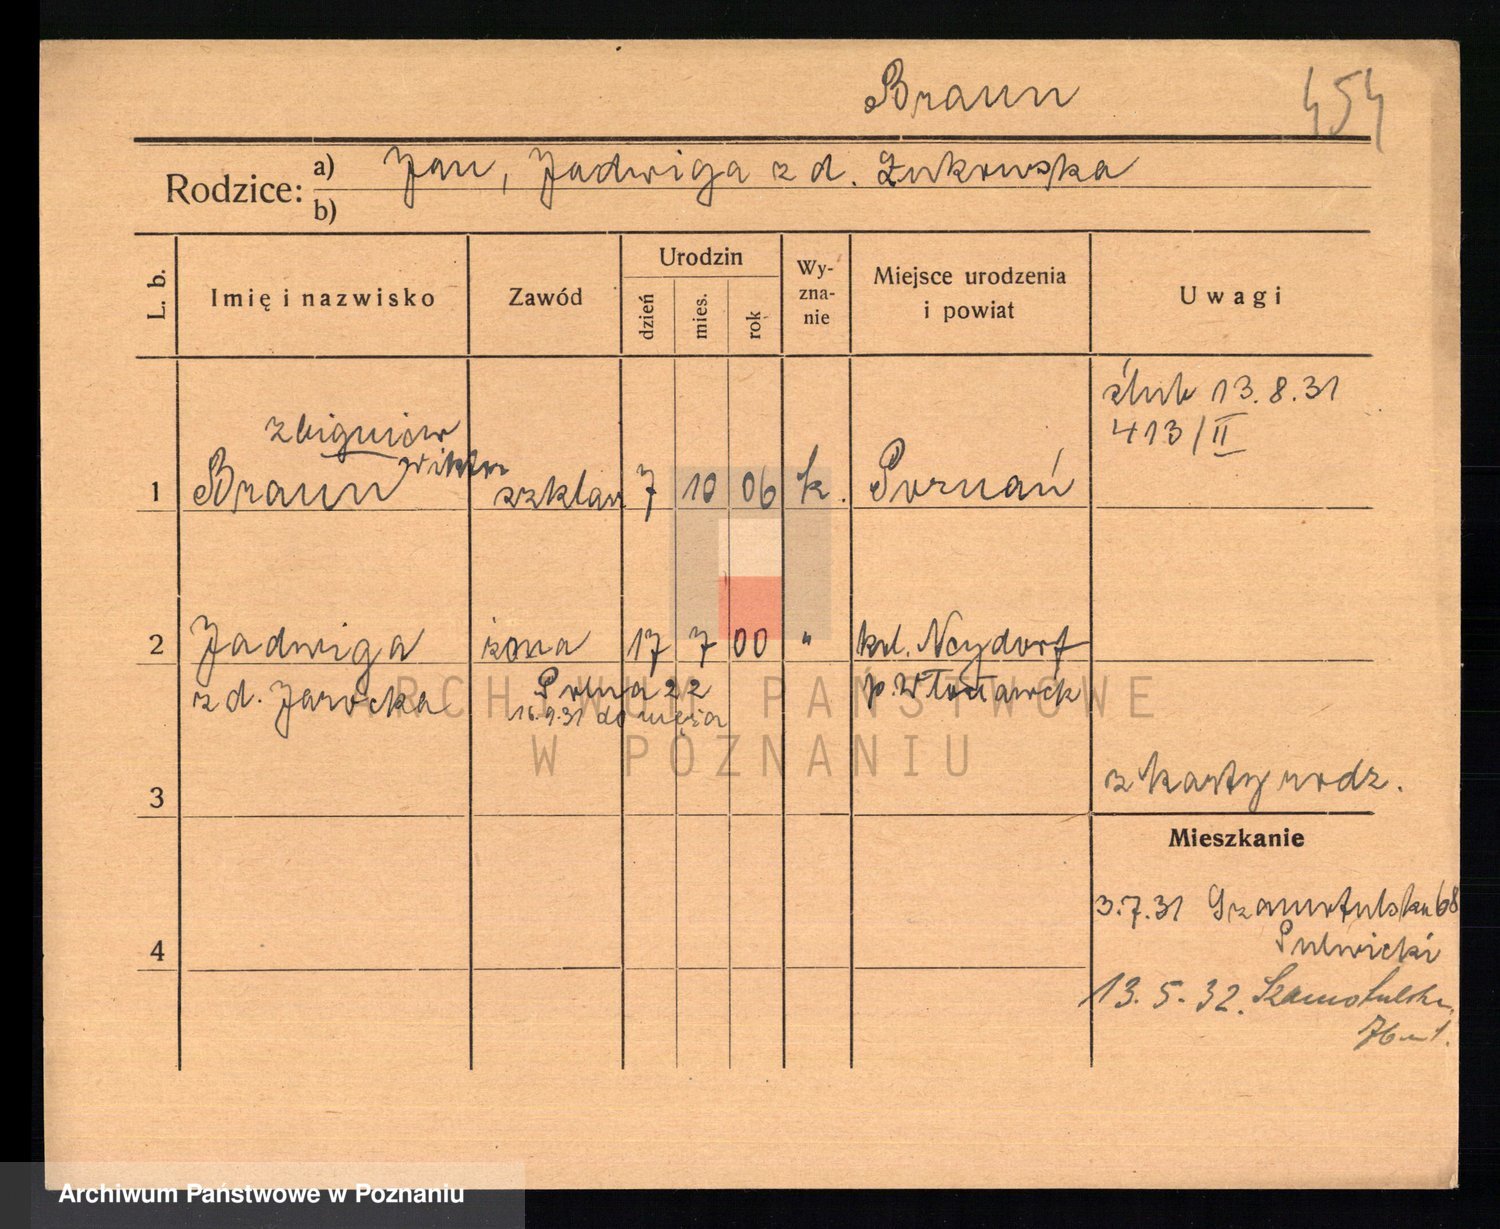 Braun
454
Rodzice: a) Jan, Jadwiga z d. Żukowska
b)
L. b.
Imię i nazwisko
Zawód
Urodzin
dzień
mies.
rok
Wy-
zna-
nie
Miejsce urodzenia
i powiat
Uwagi
ślub 13.8.31
413/II
Zbigniew
Wiktor
1 Braun szklarz 7 10 06 k. Poznań
2 Jadwiga żona 17 7 00 " kol. Neydorf
z d. Jarocka Polna 22 p. Włocławek
16.9.31 do męża
ARCHIWUM PAŃSTWOWE
W POZNANIU
z karty rodz.
3
Mieszkanie
3.7.31 Szamotulska 68
Pulwicki
4
13.5.32. Szamotulska
76 m 1.
Archiwum Państwowe w Poznaniu